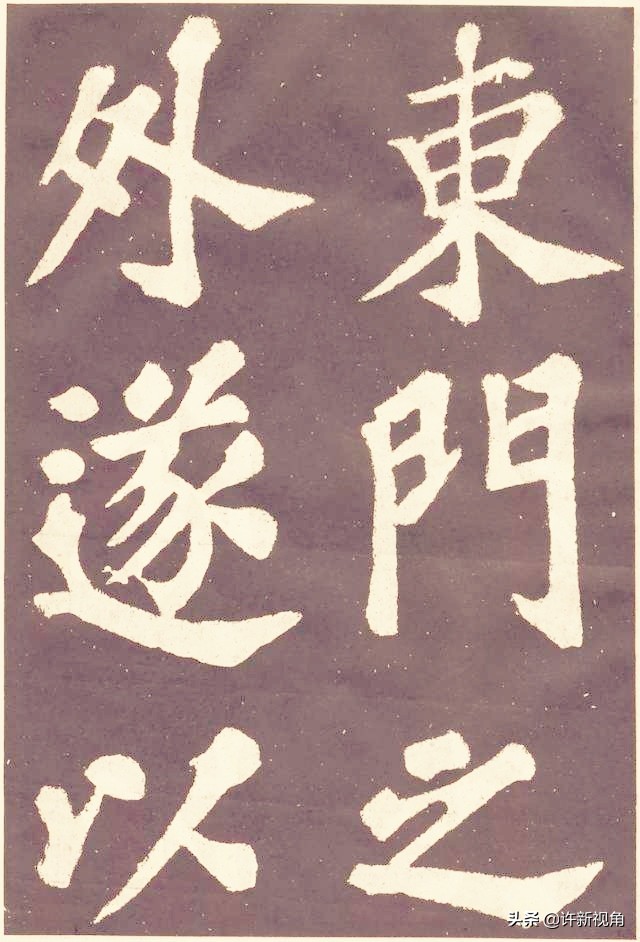 東門之
外遂以
头条 @许新视角